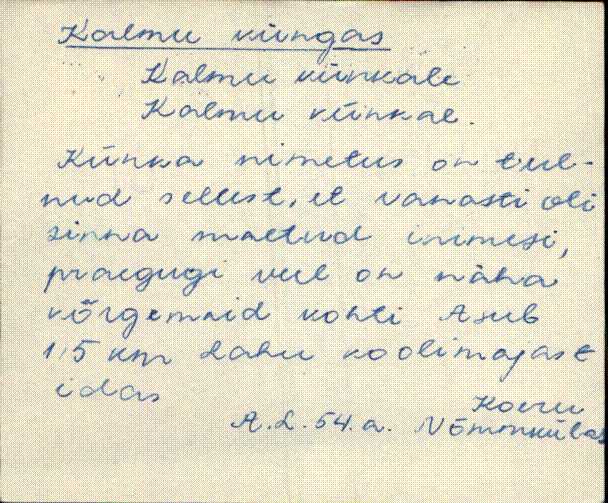 Kalmu küngas
Kalmu künkale
Kalmu künkal.
Künka nimetus on tul-
nud sellest, et vanasti oli
sinna maetud inimesi,
praegugi veel on näha
kõrgemaid kohti Asub
1,5 km Lahu koolimajast
idas
Koeru
A.L. 54.a. Nõmmkülas